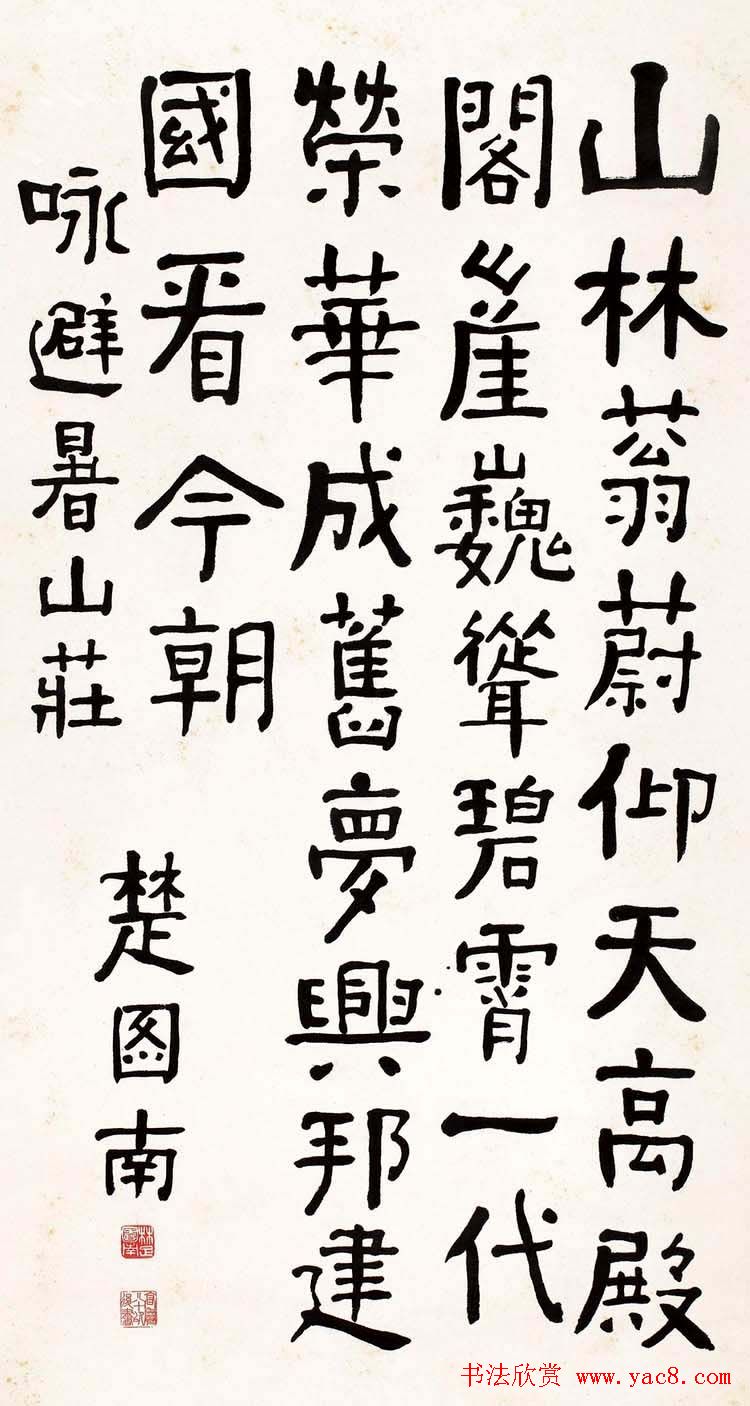 山林蓊蔚仰天高殿
閣崔巍聳碧霄一代
榮華成舊夢興邦建
國看今朝
咏避暑山莊
楚图南
楚圖南
书法欣赏 www.yac8.com